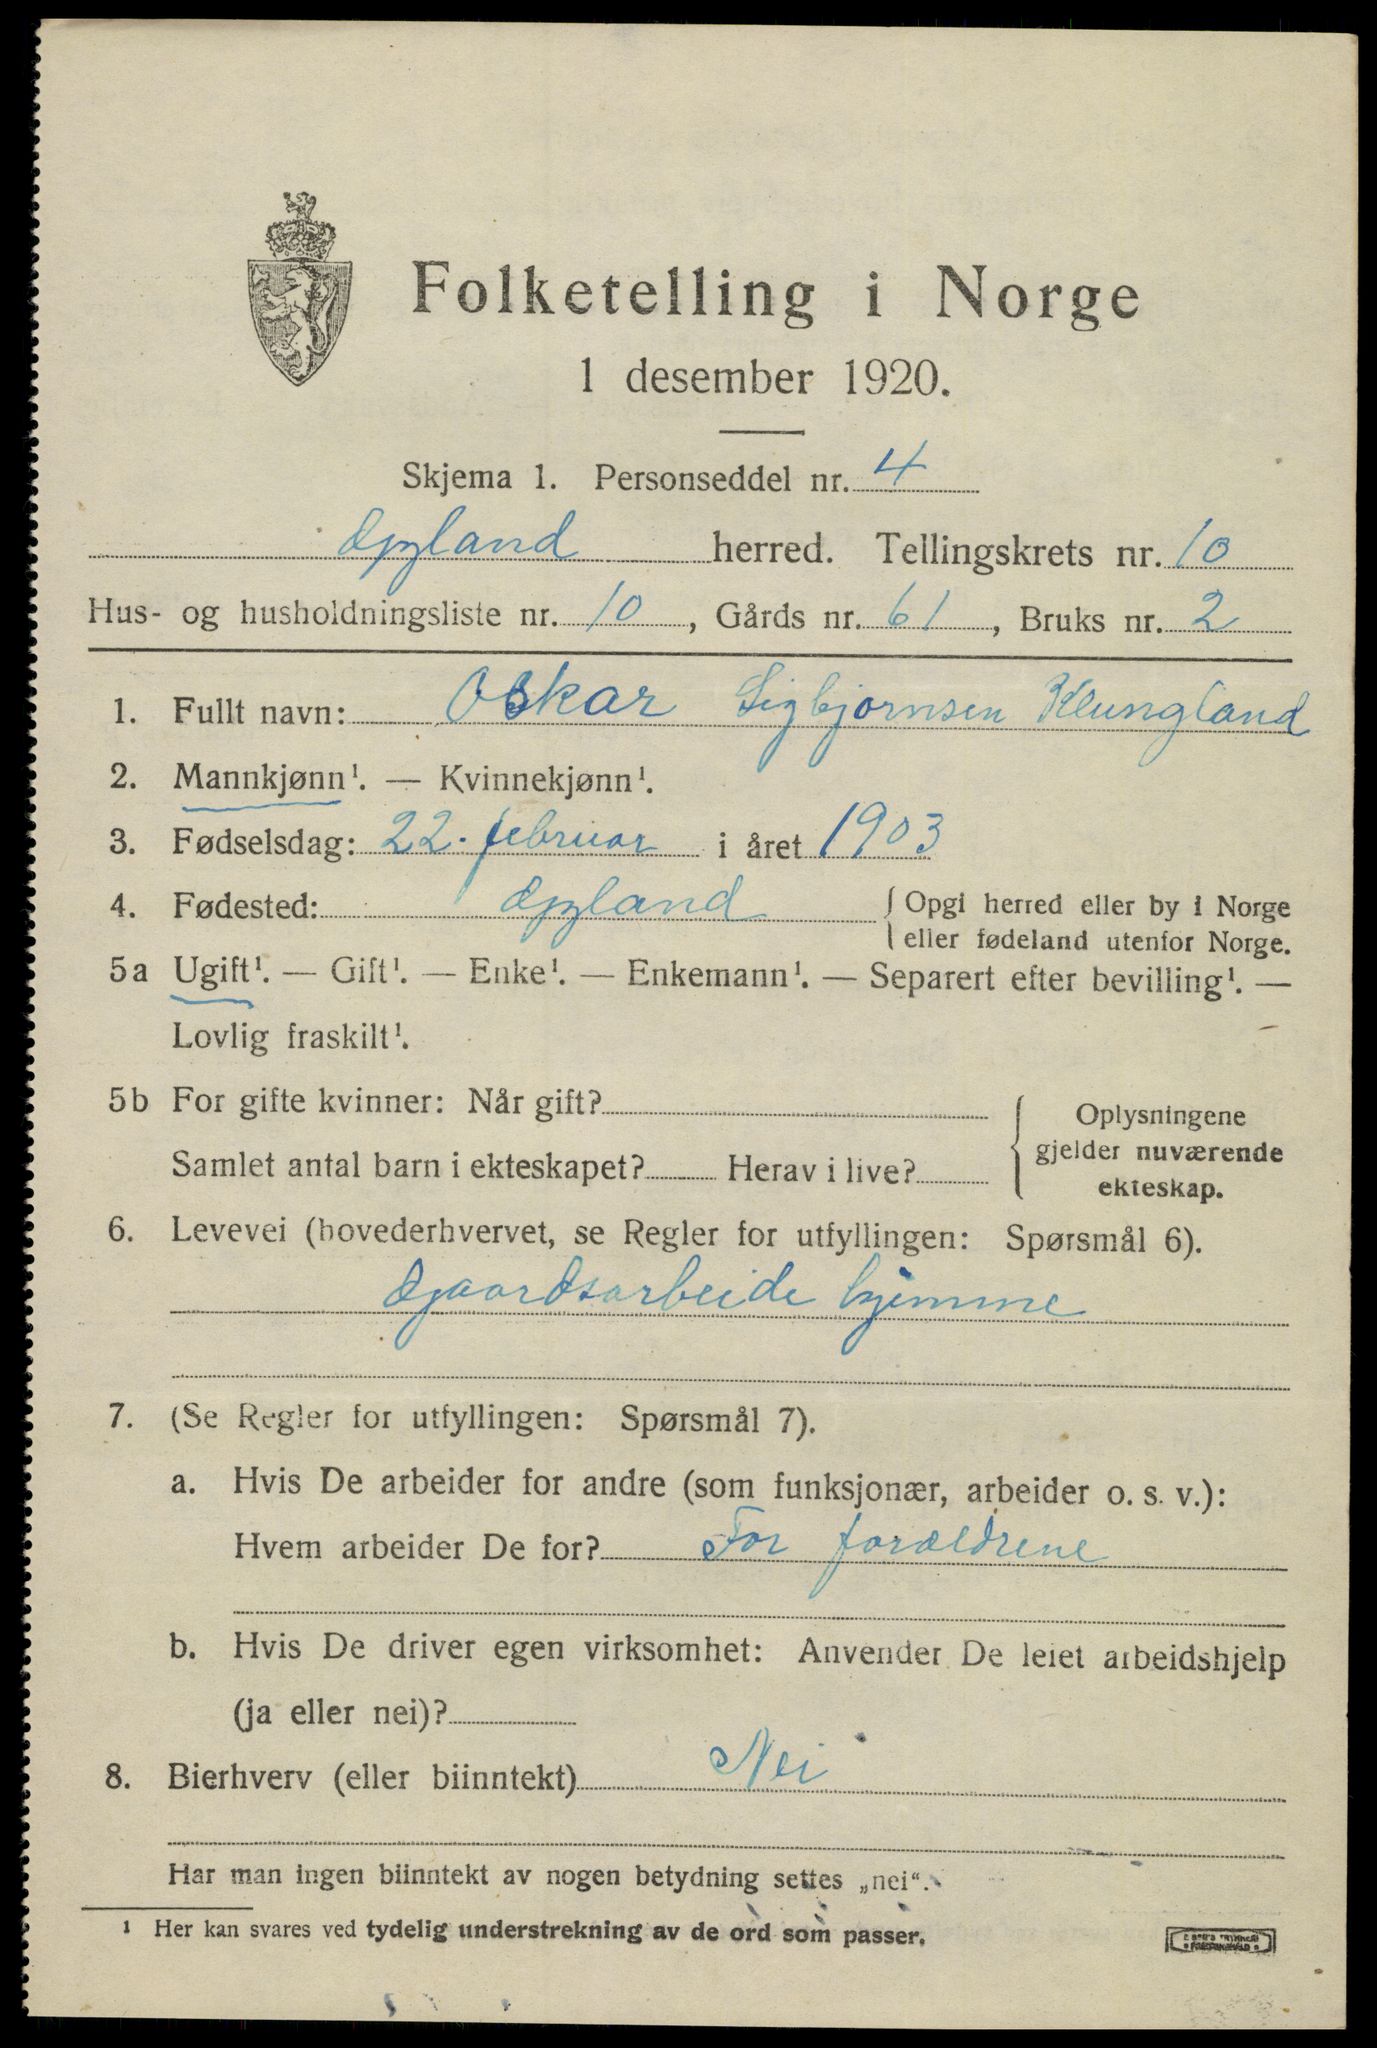 Folketelling i Norge
1 desember 1920.
Skjema 1. Personseddel nr. 4
Gyland herred. Tellingskrets nr. 10
Hus- og husholdningsliste nr. 10, Gårds nr. 61, Bruks nr. 2
1. Fullt navn: Oskar Sigbjørnsen Klungland
2. Mannkjønn¹. — Kvinnekjønn¹.
3. Fødselsdag: 22. februar i året 1903
4. Fødested: Gyland { Opgi herred eller by i Norge
eller fødeland utenfor Norge.
5a Ugift¹. — Gift¹. — Enke¹. — Enkemann¹. — Separert efter bevilling¹. —
Lovlig fraskilt¹.
5b For gifte kvinner: Når gift?
Samlet antal barn i ekteskapet? Herav i live?
{ Oplysningene
gjelder nuværende
ekteskap.
6. Levevei (hovederhvervet, se Regler for utfyllingen: Spørsmål 6).
Gaardsarbeide hjemme
7. (Se Regler for utfyllingen: Spørsmål 7).
a. Hvis De arbeider for andre (som funksjonær, arbeider o. s. v.):
Hvem arbeider De for? For forældrene
b. Hvis De driver egen virksomhet: Anvender De leiet arbeidshjelp
(ja eller nei)?
8. Bierhverv (eller biinntekt) Nei
Har man ingen biinntekt av nogen betydning settes „nei“.
¹ Her kan svares ved tydelig understrekning av de ord som passer.